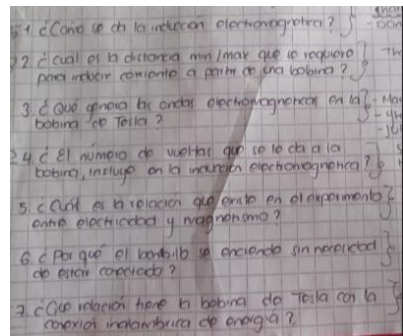 1. ¿Cómo se da la inducción electromagnetica?
2. ¿cuál es la distancia min/max que se requiere
para inducir corriente a partir de una bobina?
3. ¿Qué genera las ondas electromagneticas en la
bobina de Tesla?
4. ¿El número de vueltas que se le da a la
bobina, influye en la inducción electromagnetica?
5. ¿Cuál es la relación que existe en el experimento
entre electricidad y magnetismo?
6. ¿Por qué el bombillo se enciende sin necesidad
de estar conectado?
7. ¿Que relación tiene la bobina de Tesla con la
conexión inalambrica de energia?